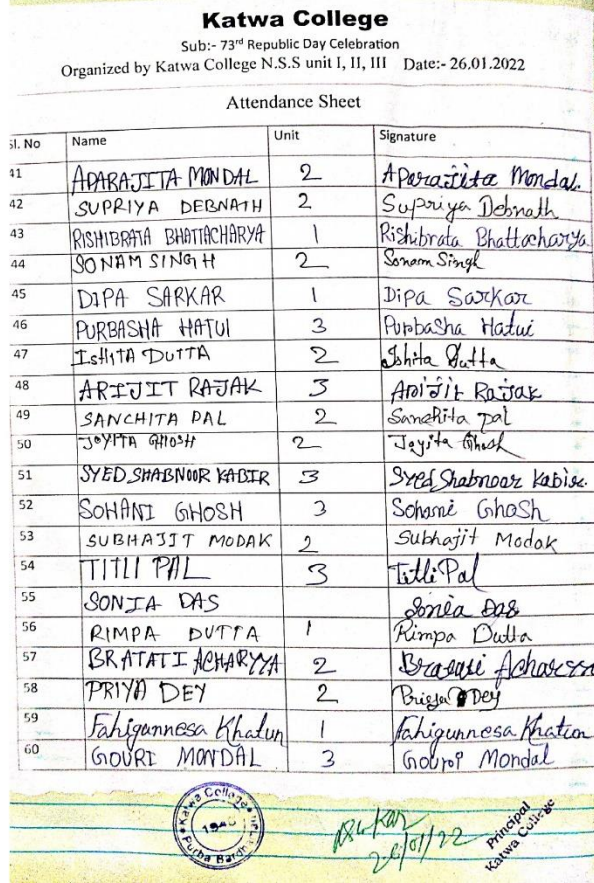 Katwa College
Sub:- 73rd Republic Day Celebration
Organized by Katwa College N.S.S unit I, II, III Date:- 26.01.2022
Attendance Sheet
Sl. No Name Unit Signature
41 APARAJITA MONDAL 2 Aparajita Mondal.
42 SUPRIYA DEBNATH 2 Supriya Debnath
43 RISHIBRATA BHATTACHARYA 1 Rishibrata Bhattacharya
44 SONAM SINGH 2 Sonam Singh
45 DIPA SARKAR 1 Dipa Sarkar
46 PURBASHA HATUI 3 Purbasha Hatui
47 ISHITA DUTTA 2 Ishita Dutta
48 ARIJIT RAJAK 3 Arijit Rajak
49 SANCHITA PAL 2 Sanchita pal
50 JOYITA GHOSH 2 Joyita Ghosh
51 SYED SHABNOOR KABIR 3 Syed Shabnoor Kabir.
52 SOHANI GHOSH 3 Sohani Ghosh
53 SUBHAJIT MODAK 2 Subhajit Modak
54 TITLI PAL 3 Titli Pal
55 SONIA DAS Sonia Das
56 RIMPA DUTTA 1 Rimpa Dutta
57 BRATATI ACHARYYA 2 Bratati Acharyya
58 PRIYA DEY 2 Priya Dey
59 Fahigunnesa Khatun 1 Fahigunnesa Khatun
60 GOURI MONDAL 3 Gouri Mondal
Katwa College
1948
Purba
26/01/22
Principal
Katwa College